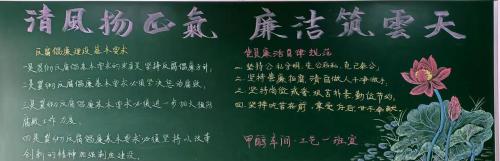 清風扬正氣 廉洁筑雲天
反腐倡廉建设基本要求
一是党的反腐倡廉基本要求的本质是坚持反腐倡廉方针；
二是党的反腐倡廉基本要求必须坚决惩治腐败；
三是党的反腐倡廉基本要求必须进一步加大预防
腐败工作力度；
四是党的反腐倡廉基本要求必须坚持以改革
创新的精神加强制度建设。
党员廉洁自律规范
一.坚持公私分明，先公后私，克己奉公；
二.坚持崇廉拒腐，清白做人，干净做事；
三.坚持尚俭戒奢，艰苦朴素，勤俭节约；
四.坚持吃苦在前，享受在后，甘于奉献。
甲醇车间·工艺一班宣